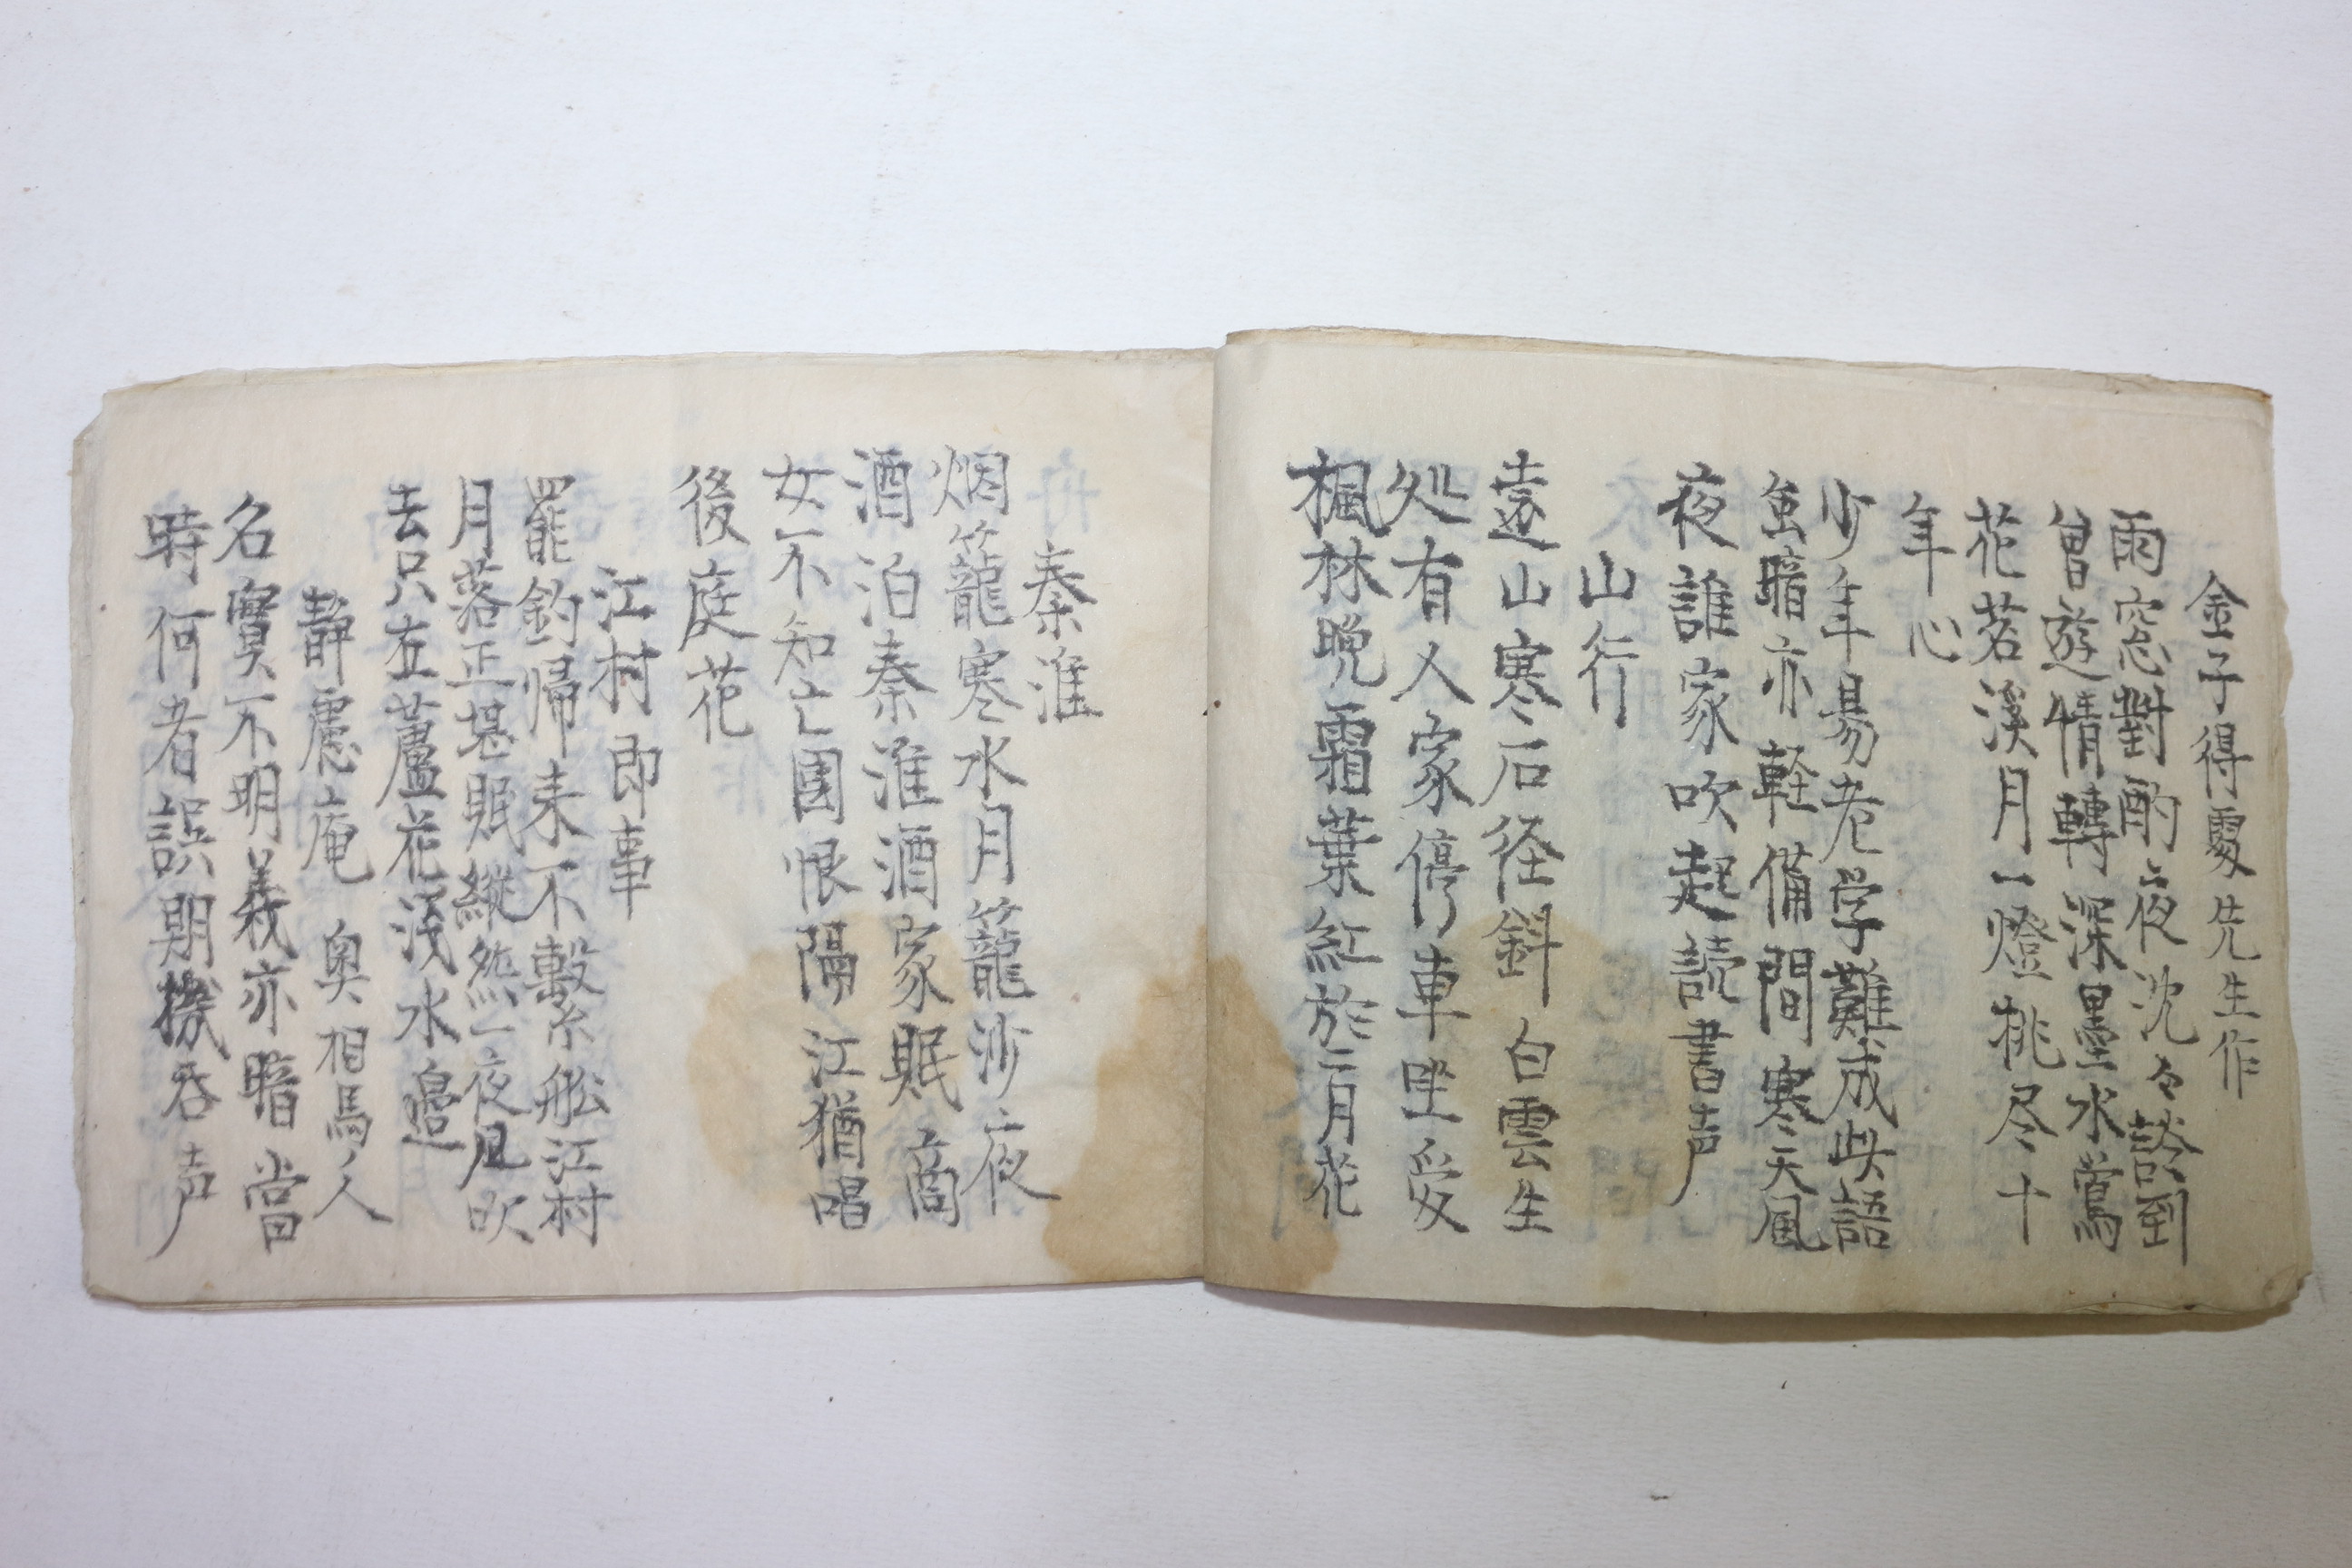 金子得處先生作
雨窓對酌夜沈々話到
曽遊情轉深墨水鴬
花苕溪月一燈桃尽十
年心
少年易老学難成此語
虽暗亦軽備間寒天風
夜誰家吹起読書声
山行
遠山寒石径斜白雲生
処有人家停車坐爱
楓林晩霜葉紅於二月花
秦淮
烟籠寒水月籠沙夜
酒泊秦淮酒家眠商
女不知亡国恨隔江猶唱
後庭花
江村即事
罷釣帰来不繫舩江村
月落正堪眠縦然一夜風吹
去只在蘆花浅水邉
靜慮庵奥相馬人
名實不明義亦暗當
時何者誤期機呑声